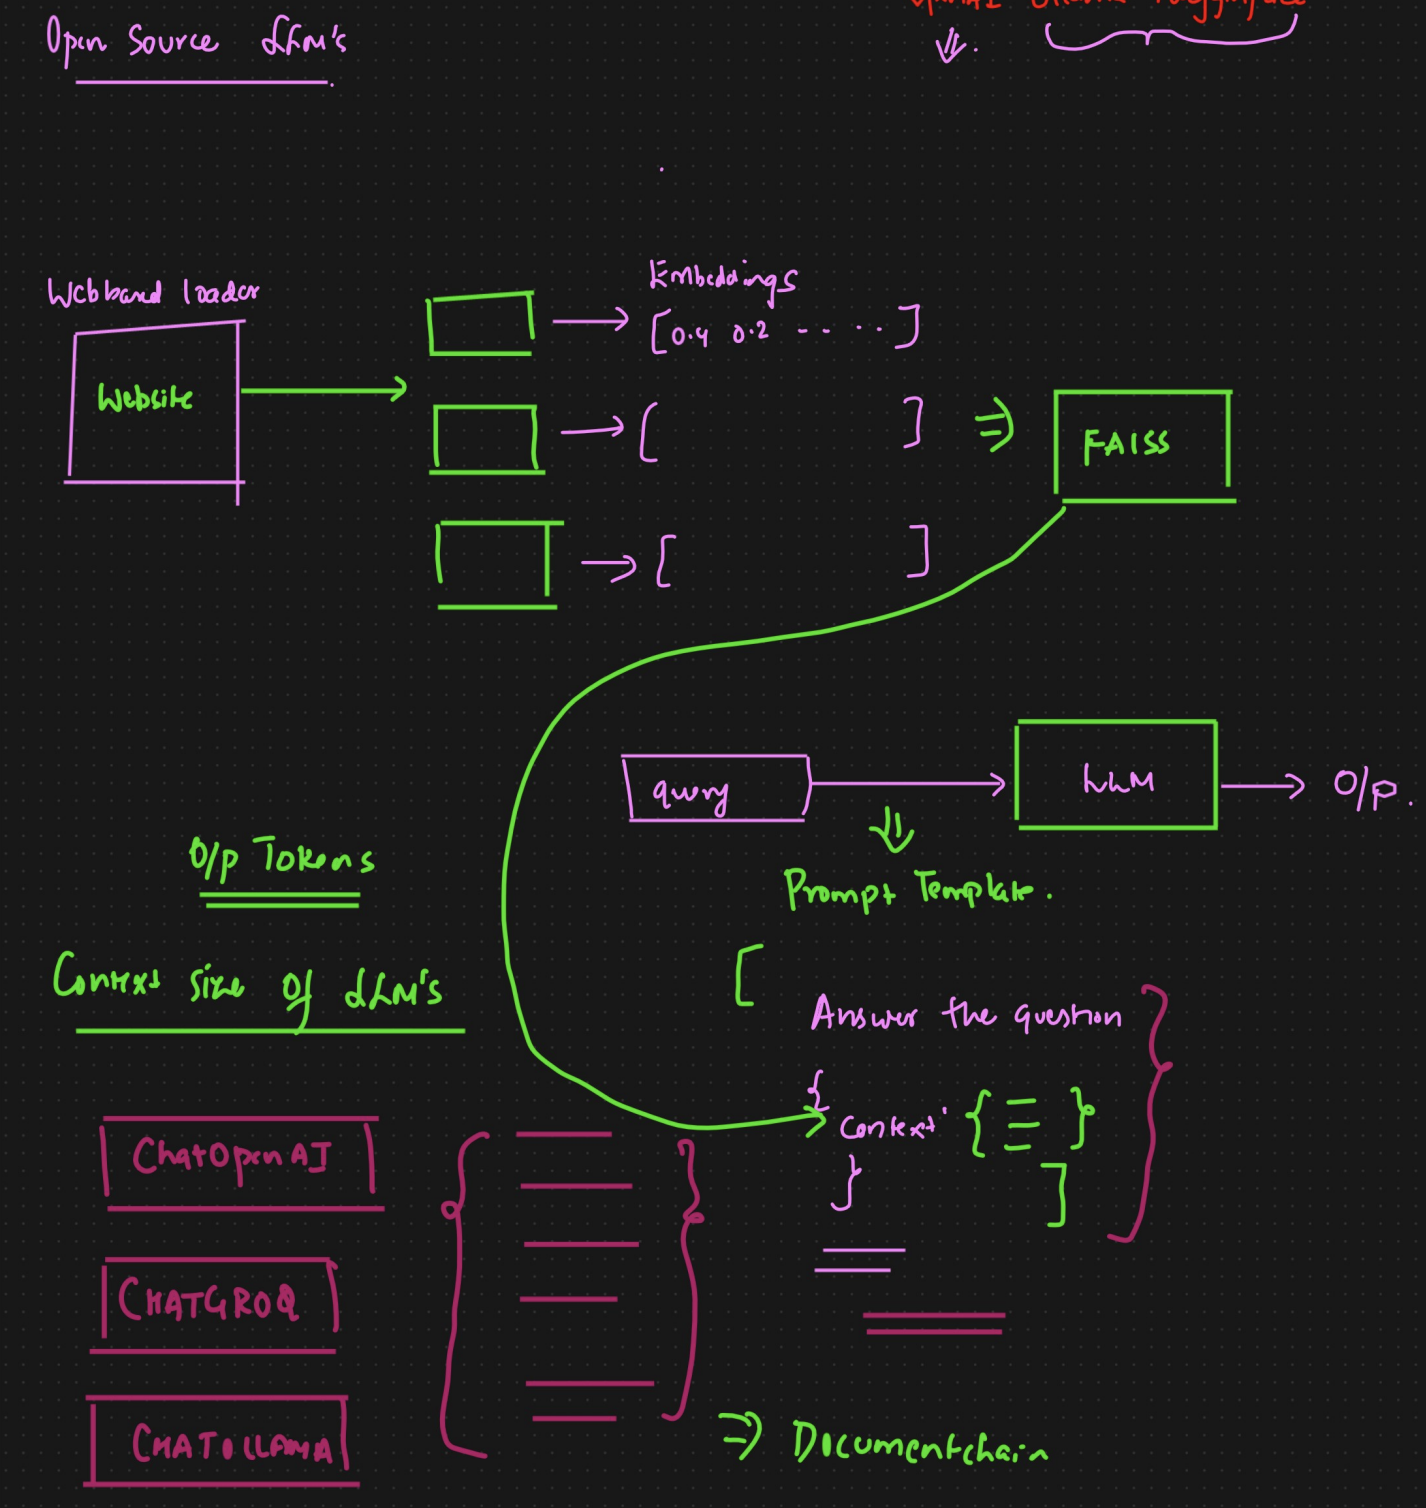 Open Source LLM's
Webband loader
Website
Embeddings
[0.4 0.2 -- -- ...]
[ ]
[ ]
FAISS
query
LLM
O/p.
Prompt Template.
O/p Tokens
Context size of LLM's
[
Answer the question
{
Context {
}
}
]
ChatOpenAI
CHATGROQ
CHATOLLAMA
Documentchain